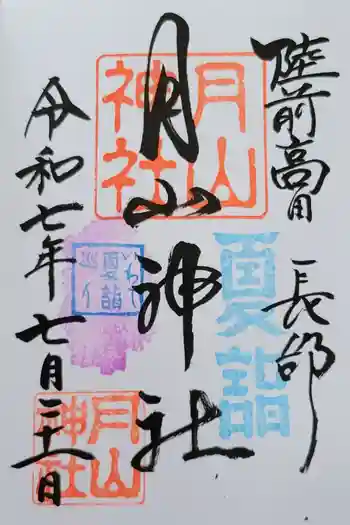 陸前高田 長部
夏詣
月山神社
月山
神社
いわて
夏詣
巡り
月山
神社
令和七年七月二十一日